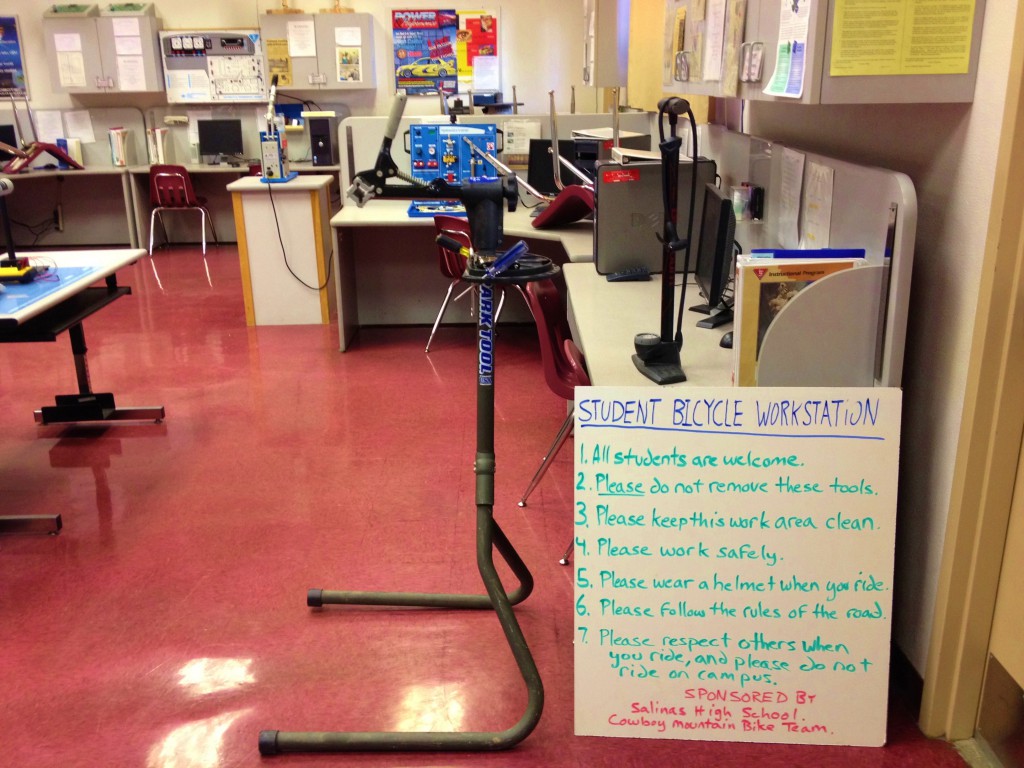 POWER
Instructional Program
PARK TOOL
STUDENT BICYCLE WORKSTATION
1. All students are welcome.
2. Please do not remove these tools.
3. Please keep this work area clean.
4. Please work safely.
5. Please wear a helmet when you ride.
6. Please follow the rules of the road.
7. Please respect others when
you ride, and please do not
ride on campus.
SPONSORED BY
Salinas High School
Cowboy Mountain Bike Team.